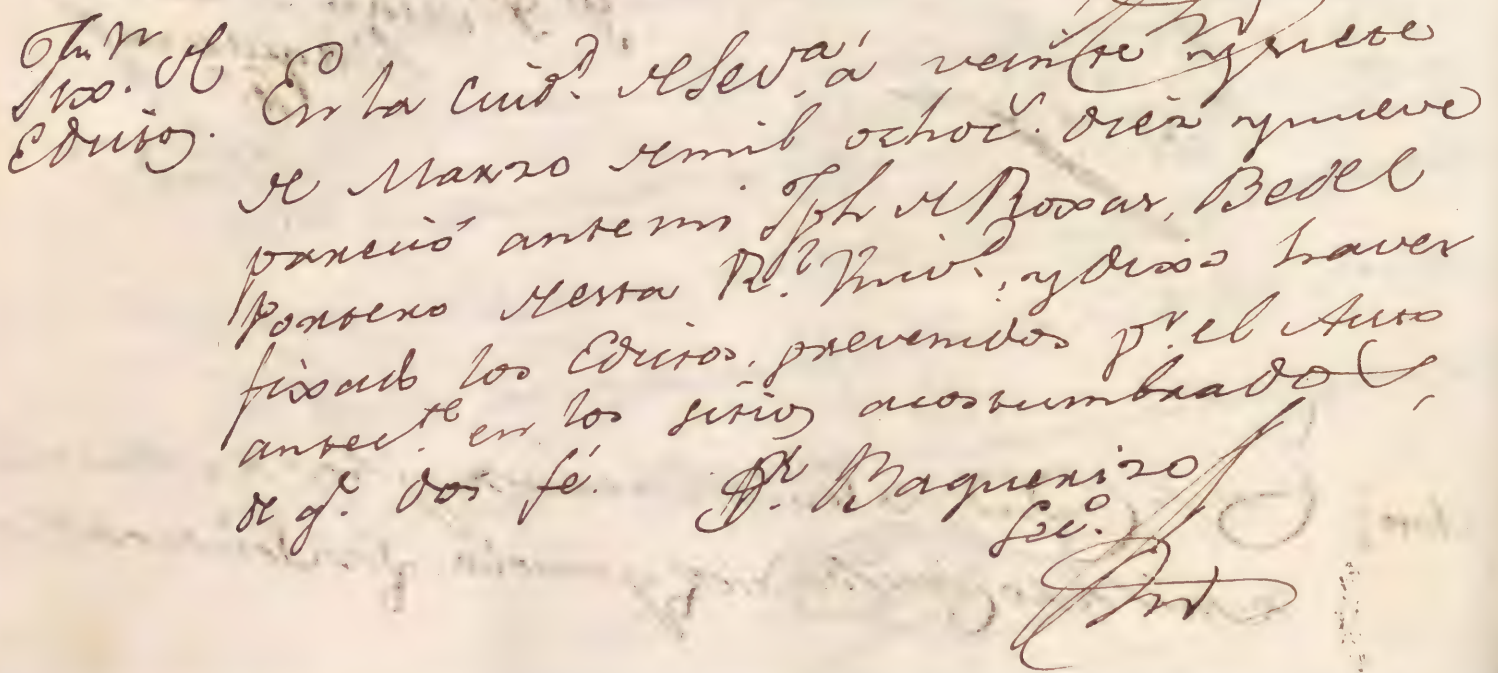 fixo. de
Edictos.
En la Ciud.d de Sev.a á veinte y siete
de Marzo de mil ochoc.s diez y nueve
pareció ante mi Jph de Roxas, Bedel
Portero de esta R.l Univ.d, y dixo haver
fixado los Edictos, prevenidos p.r el Auto
antec.te en los sitios acostumbrados,
de q.e doi fé. Dr. Baquerizo
Sec.o